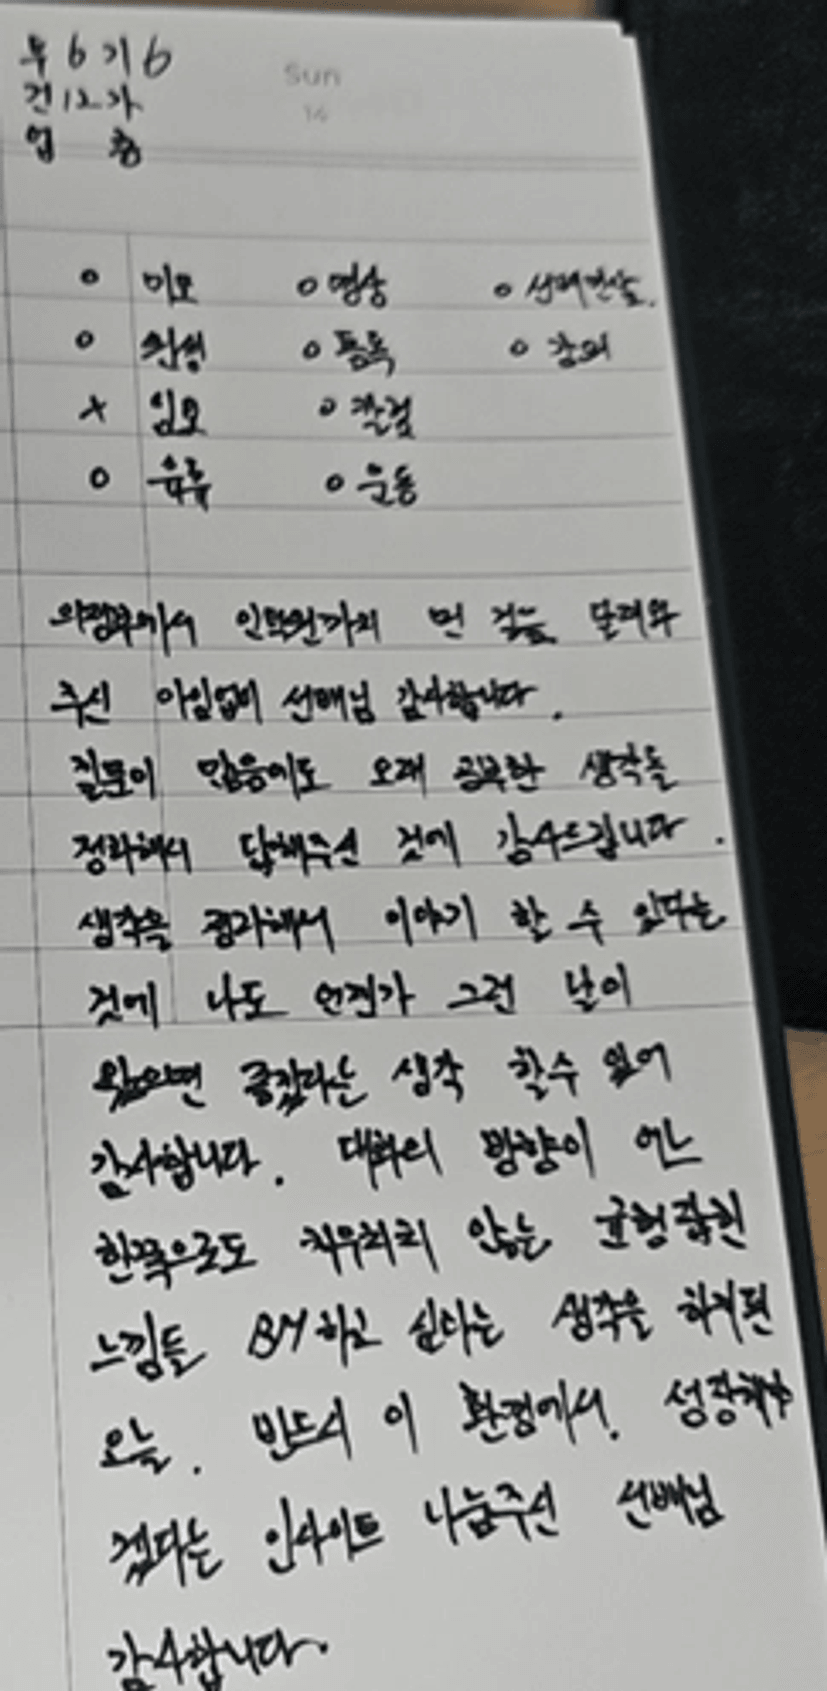 부 6 기 6
건 12 가
업 총
Sun
14
o 미모 o 명상 o 선배만남.
o 확신 o 등록 o 강의
x 임모 o 칼럼
o 유류 o 운동
의정부에서 인학원까지 먼 길을 달려와
주신 아임업비 선배님 감사합니다.
질문이 많음에도 오래 공부한 생각을
정리해서 답해주신 것에 감사드립니다.
생각을 정리해서 이야기 할 수 있다는
것에 나도 언젠가 그런 날이
왔으면 좋겠다는 생각 할수 있어
감사합니다. 대화의 방향이 어느
한쪽으로도 치우치지 않는 균형잡힌
느낌들 BM하고 싶다는 생각을 하게된
오늘. 반드시 이 환경에서. 성장해야
겠다는 인사이트 나눔주신 선배님
감사합니다.